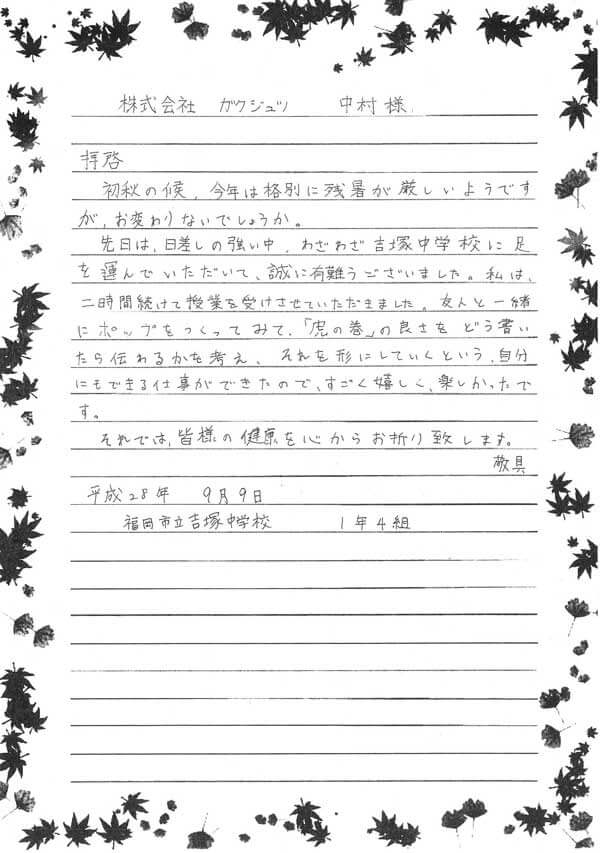 株式会社 ガクジュツ 中村様
拝啓
初秋の候、今年は格別に残暑が厳しいようです
が、お変わりないでしょうか。
先日は、日差しの強い中、わざわざ吉塚中学校に足
を運んでいただいて、誠に有難うございました。私は、
二時間続けて授業を受けさせていただきました。友人と一緒
にポップをつくってみて、「虎の巻」の良さをどう書い
たら伝わるかを考え、それを形にしていくという、自分
にもできる仕事ができたので、すごく嬉しく、楽しかったで
す。
それでは、皆様の健康を心からお祈り致します。
敬具
平成28年 9月9日
福岡市立吉塚中学校 1年4組